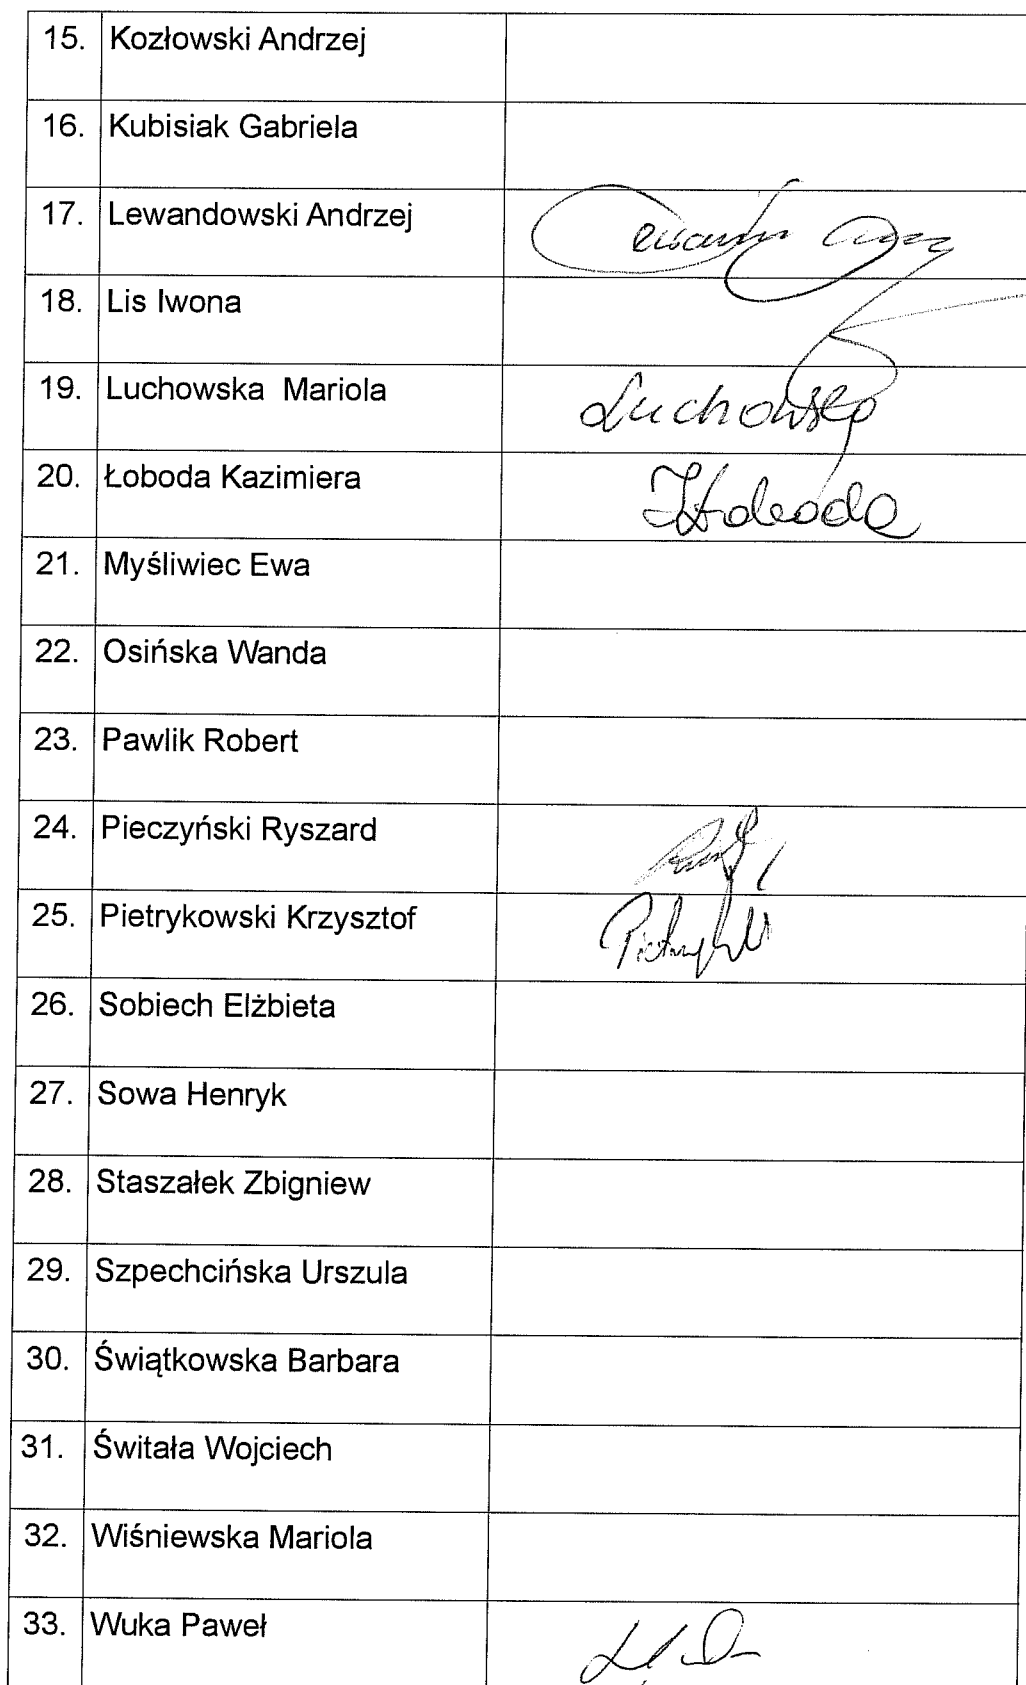 15. Kozłowski Andrzej
16. Kubisiak Gabriela
17. Lewandowski Andrzej
18. Lis Iwona
19. Luchowska Mariola Luchowska
20. Łoboda Kazimiera
21. Myśliwiec Ewa
22. Osińska Wanda
23. Pawlik Robert
24. Pieczyński Ryszard
25. Pietrykowski Krzysztof
26. Sobiech Elżbieta
27. Sowa Henryk
28. Staszałek Zbigniew
29. Szpechcińska Urszula
30. Świątkowska Barbara
31. Świtała Wojciech
32. Wiśniewska Mariola
33. Wuka Paweł